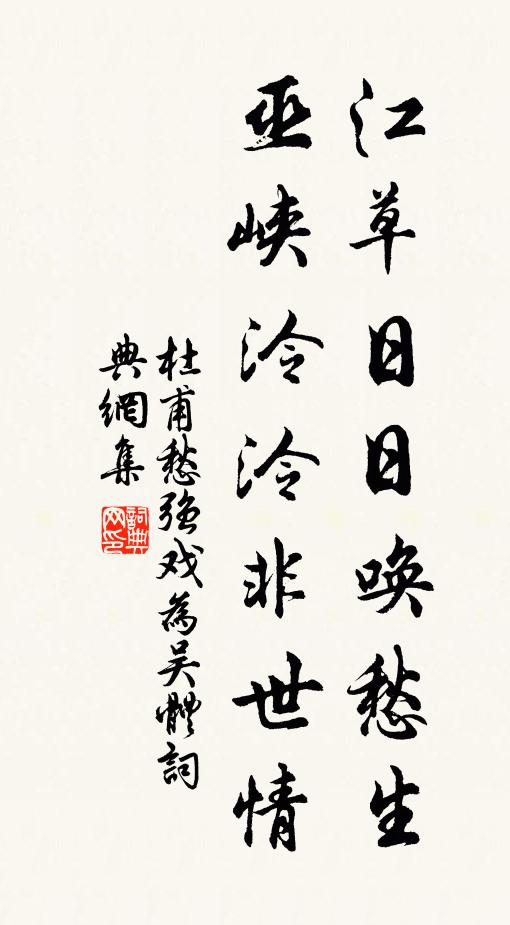 江草日日唤愁生
巫峡泠泠非世情
杜甫愁强戏為吴體詞
典網集
詞典网印